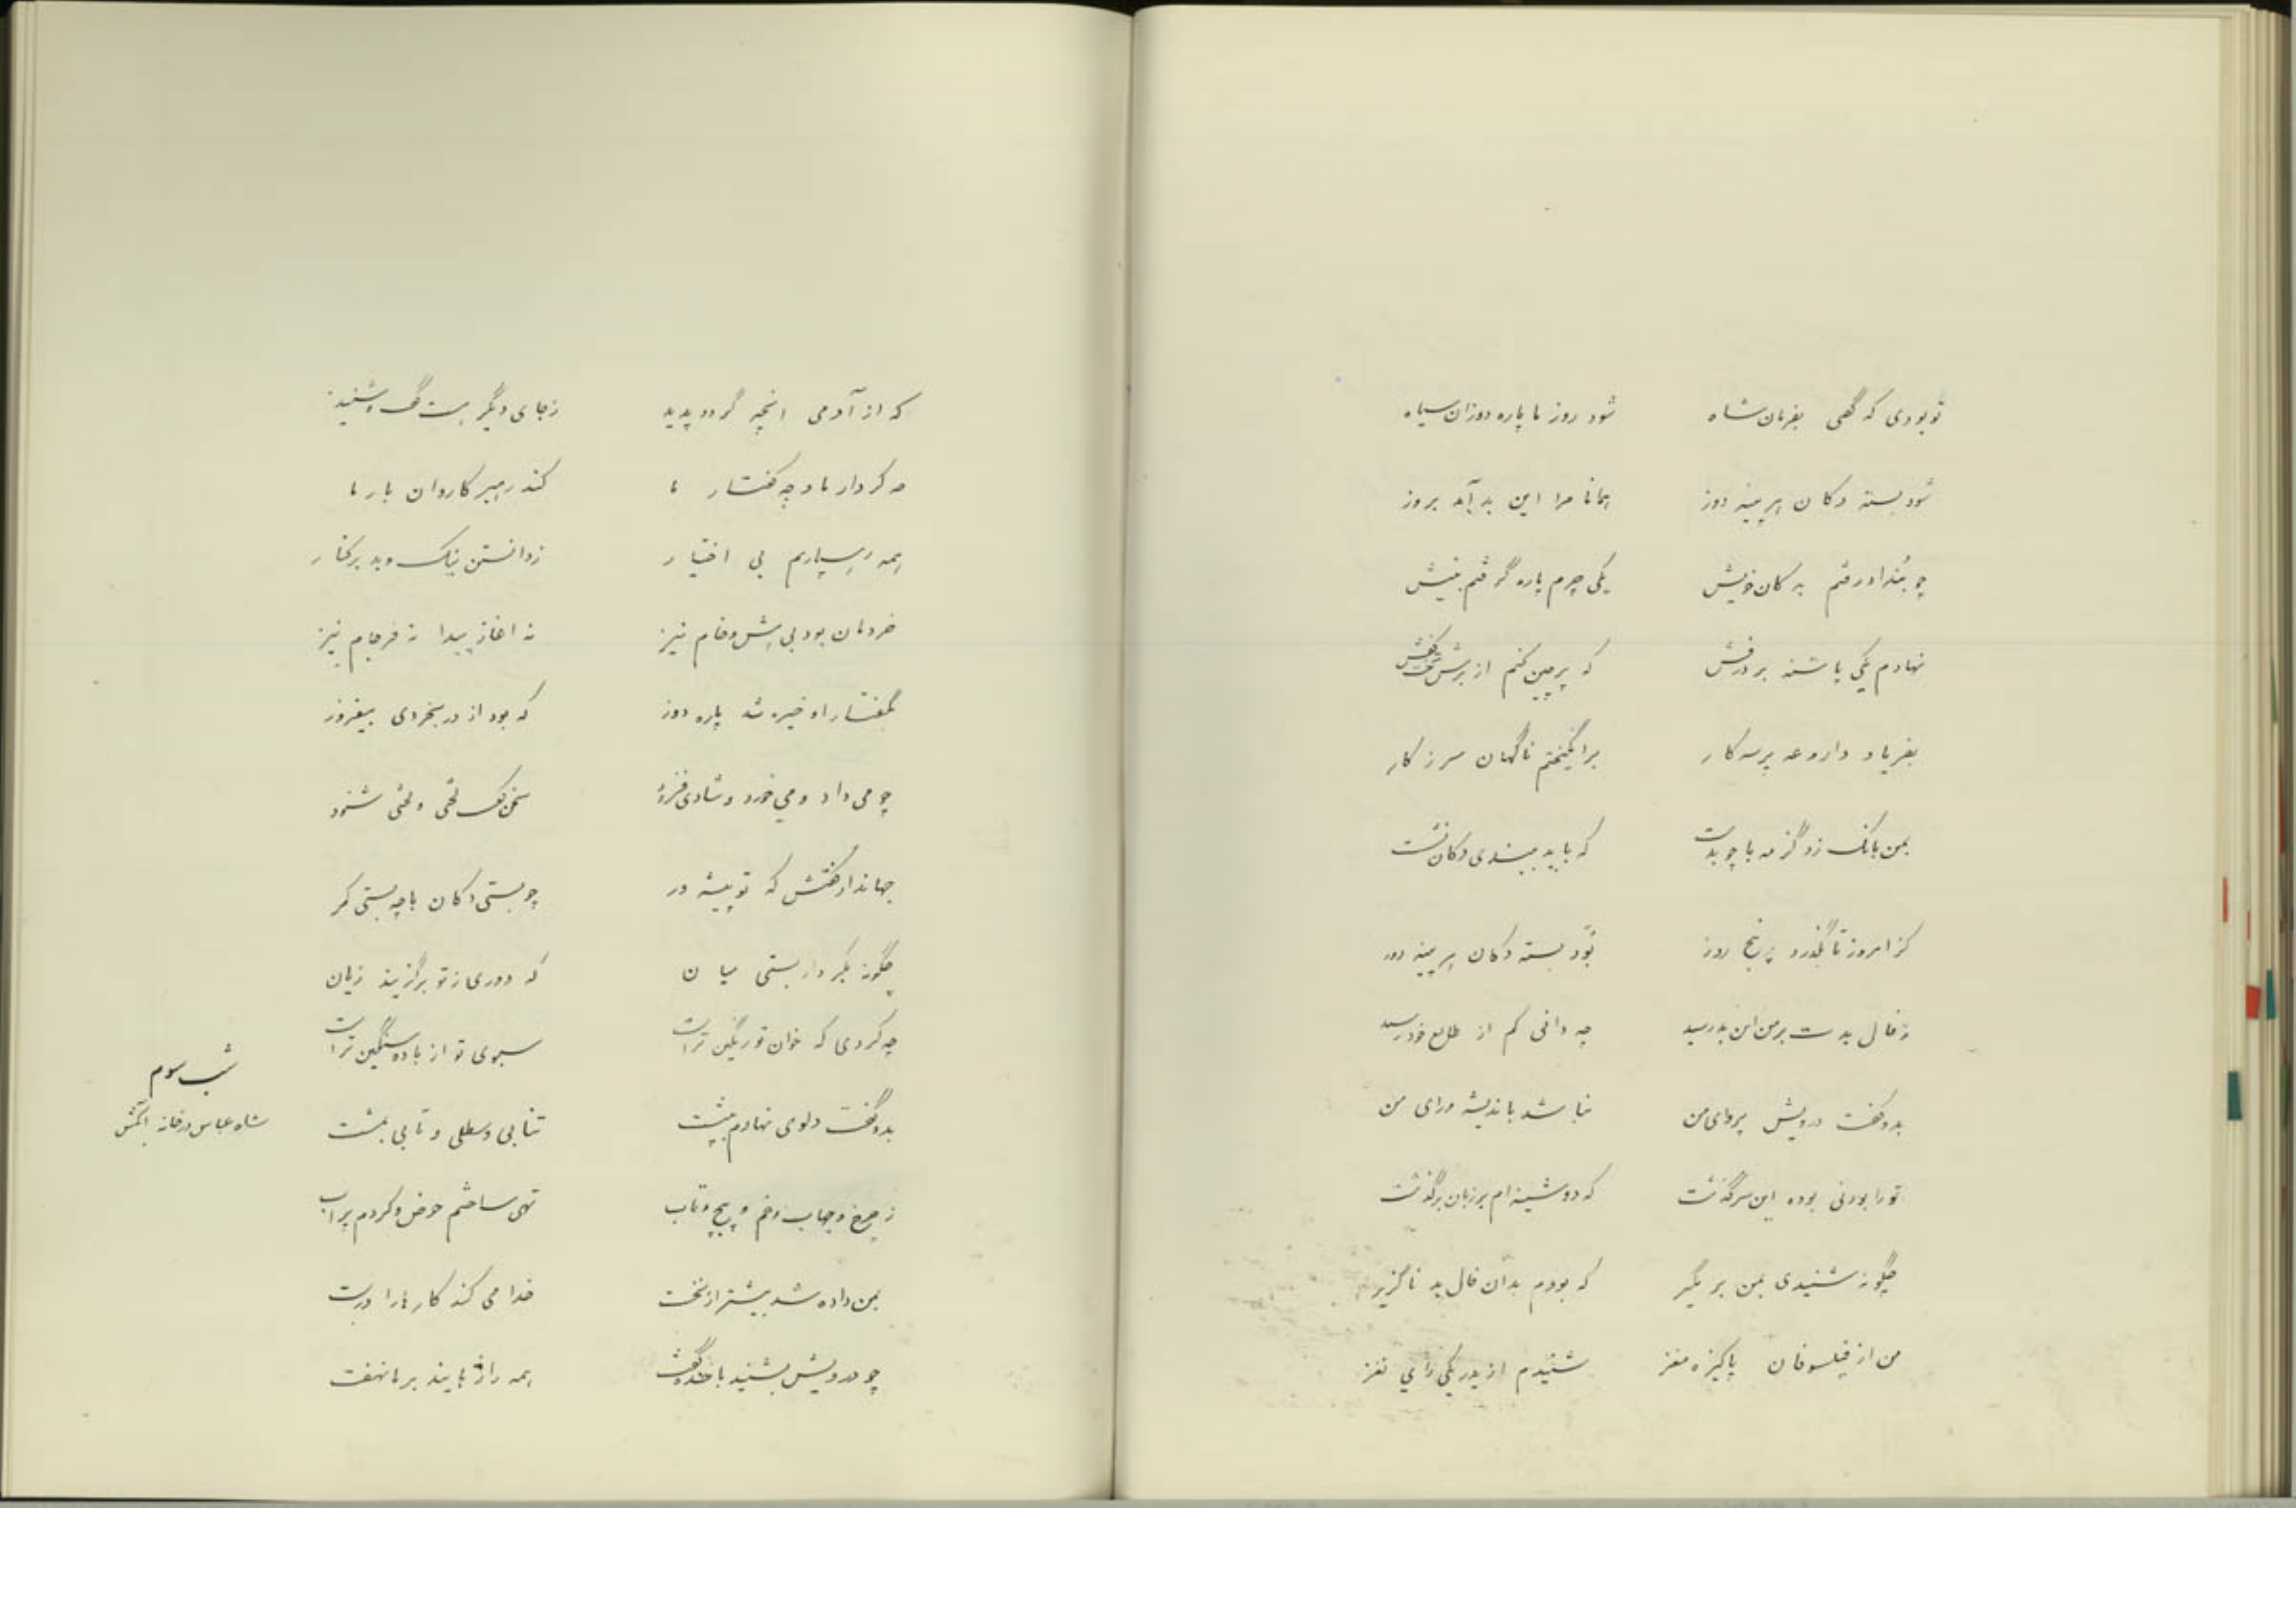 تو بودی که گفتی بفرمان شاه شود روز ما پاره دوزان سیاه
شود بسته دکان هر پینه دوز همانا مرا این بد آمد بروز
چو بُغداد رفتم به دکان خویش یکی چرم پاره گرفتم به پیش
نهادم یکی پاشنه بر درفش که پرچین کنم از برش تخت کفش
بفریاد داروغه پر سه کار برانگیختم ناگهان سر ز کار
بمن بانک زد گزمه با چوبدست که باید ببندی دکان نشست
کز امروز تا بگذرد پنج روز بُوَد بسته دکان هر پینه دوز
ز فال بدت بر من این بد رسید چه دانی کم از طالع خود رسید
بدو گفت درویش پروای من نباشد باندیشه و رای من
تو را بودنی بوده این سرگذشت که دوشینه ام بر زبان برگذشت
چگونه شنیدی بمن بر مگیر که بودم بدان فال بد ناگزیر
من از فیلسوفان پاکیزه مغز شنیدم از پدر یکی رای نغز
که از آدمی انچه گردد پدید ز جای دیگر است گفت و شنید
چه کردار ما و چه گفتار ما کند رهبر کاروان بار ما
همه رهسپاریم بی اختیار ز دانستن نیک و بد برکنار
خردمان بود بی هش و خام نیز نه اغاز پیدا نه فرجام نیز
بگفتار او خیره شد پاره دوز که بود از در بخردی بیفروز
چو می داد و می خورد و شادی فزود سخن گفت لختی و لختی شنود
جهاندار گفتش که تو پیشه ور چو بستی دکان با چه بستی کمر
چگونه بکردار بستی میان که دوری ز تو برگزیند زیان
چه کردی که خوان تو رنگین تر است سبوی تو از باده سنگین تر است
شب سوم
شاه عباس در خانه آبکش
بدو گفت دلوی نهادم بپشت تنابی و سطلی و تابی بمشت
ز چرخ و چاب و خم و پیچ و تاب تهی ساختم حوض و کردم پر اب
بمن داده شد بیشتر از نخست خدا می کند کارها را درست
چو درویش بشنید با خنده گفت همه رازها بیند بر ما نهفت